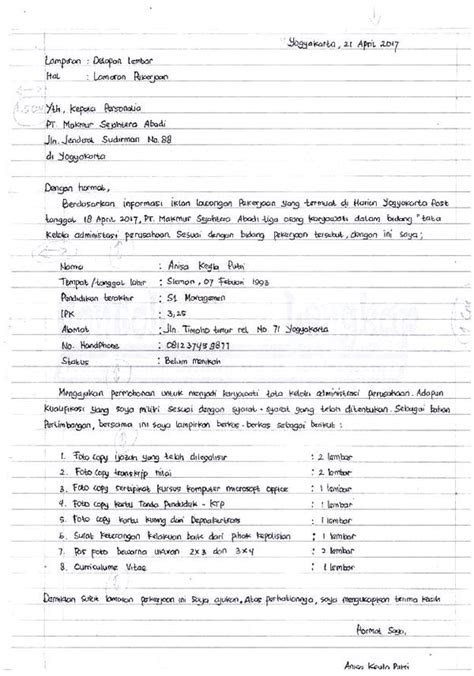 Yogyakarta, 21 April 2017
Lampiran : Delapan lembar
Hal : Lamaran Pekerjaan
Yth, Kepala Personalia
PT. Makmur Sejahtera Abadi
Jln. Jenderal Sudirman No. 88
di Yogyakarta
Dengan hormat,
Berdasarkan informasi iklan lowongan Pekerjaan yang termuat di Harian Yogyakarta Post
tanggal 18 April 2017, PT. Makmur Sejahtera Abadi tiga orang karyawati dalam bidang "tata
kelola administrasi perusahaan. Sesuai dengan bidang pekerjaan tersebut, dengan ini saya;
Nama : Anisa Keyla Putri
Tempat /tanggal lahir : Sleman, 07 Februari 1993
Pendidikan terakhir : S1 Managemen
IPK : 3,25
Alamat : Jln. Timoho timur rel No. 71 Yogyakarta
No. HandPhone :
Status : Belum menikah
Mengajukan permohonan untuk menjadi karyawati tata kelola administrasi perusahaan. Adapun
kualifikasi yang saya miliki sesuai dengan syarat-syarat yang telah ditentukan. Sebagai bahan
Pertimbangan, bersama ini saya lampirkan berkas-berkas sebagai berikut :
1. Foto copy ijazah yang telah dilegalisir : 2 lembar
2. Foto copy transkrip nilai : 2 lembar
3. Foto copy sertipikat kursus komputer microsoft office : 1 lembar
4. Foto copy kartu Tanda Penduduk - KTP : 1 lembar
5. Foto copy kartu kuning dari Depnakertrans : 1 lembar
6. Surat keterangan kelakuan baik dari pihak kepolisian : 1 lembar
7. Pas foto bewarna ukuran 2x3 dan 3x4 : 2 lembar
8. Curriculume Vitae : 1 lembar
Demikian surat lamaran pekerjaan ini saya ajukan. Atas perhatiannya, saya mengucapkan terima kasih
Hormat Saya,
Anisa Keyla Putri